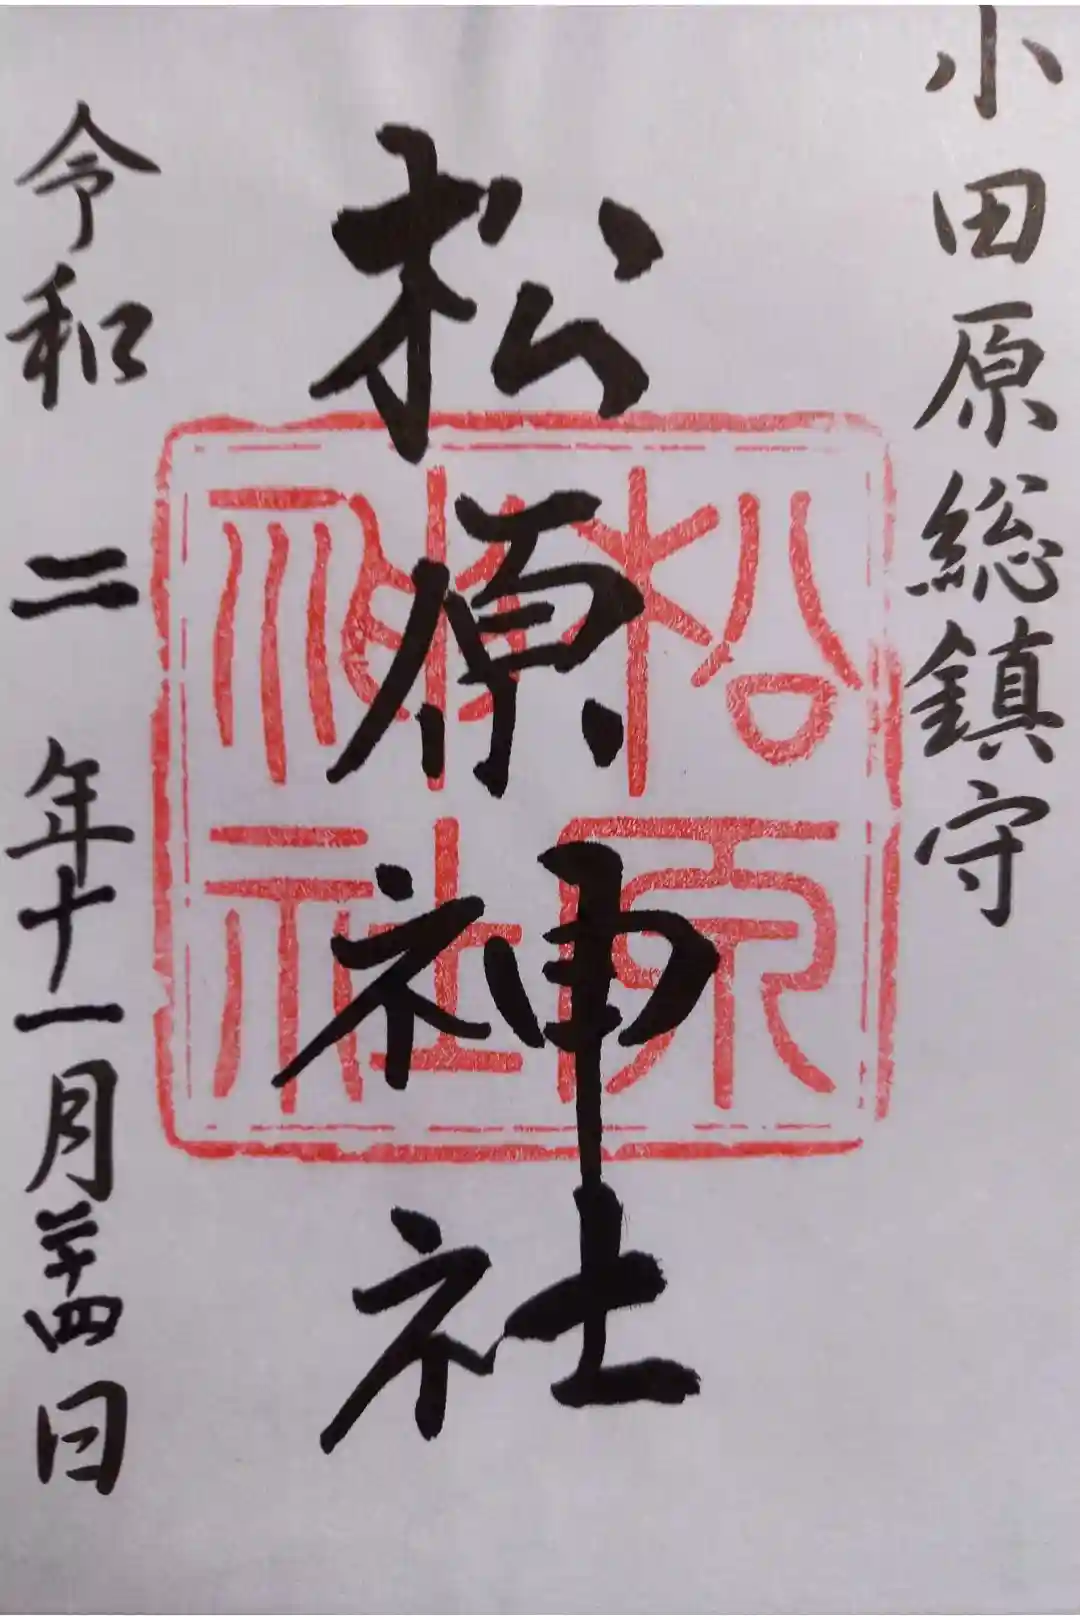 小田原総鎮守
松原神社
松原神社
令和二年十一月廿四日